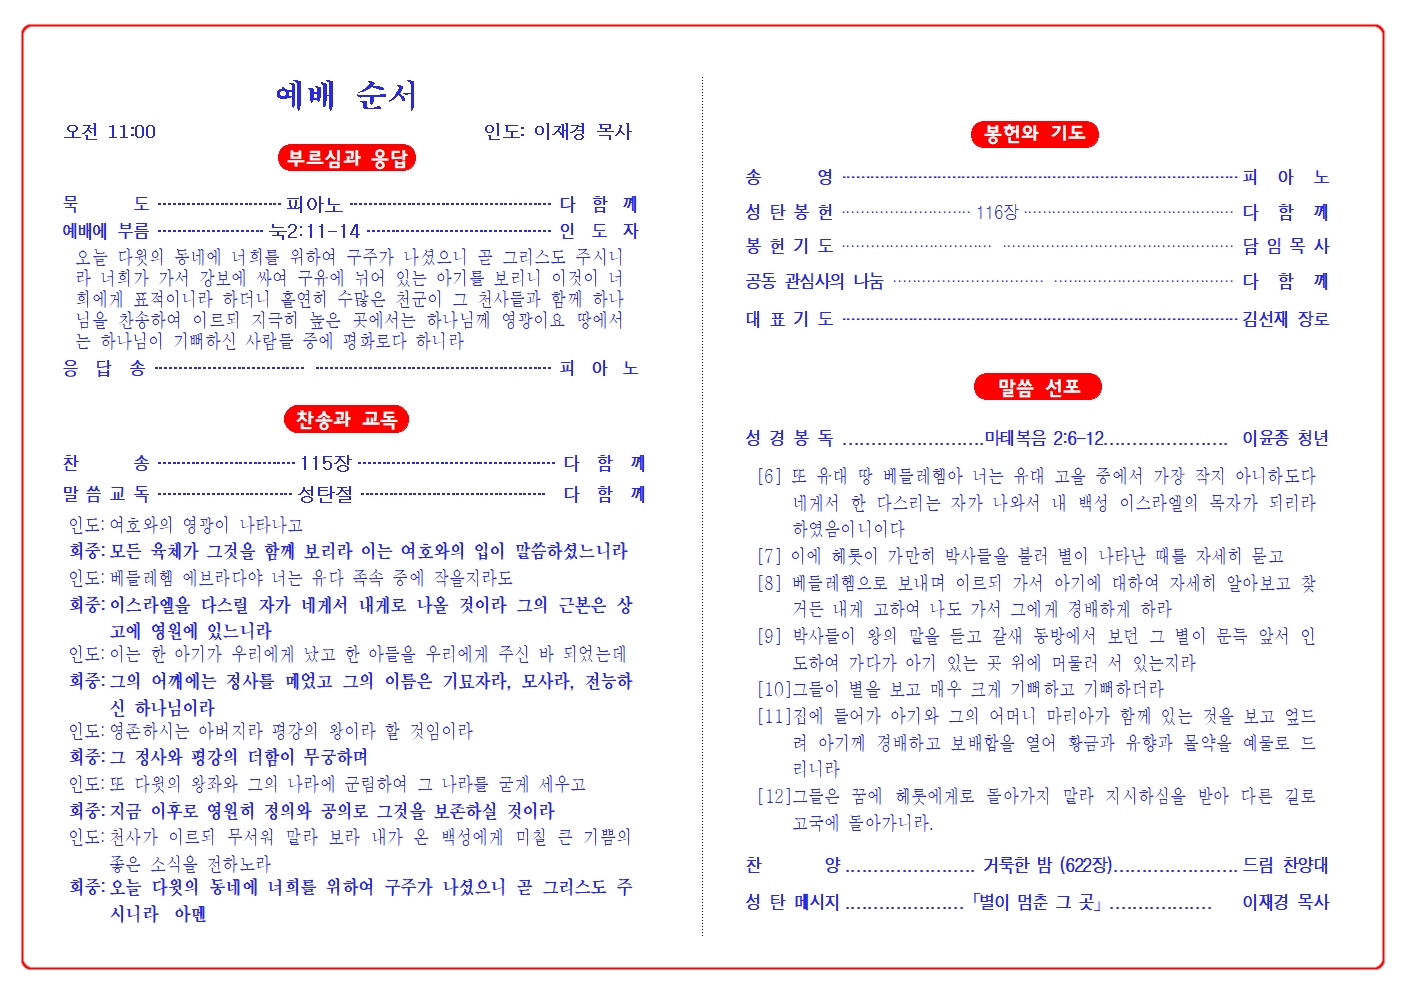 예배 순서
오전 11:00 인도: 이재경 목사
부르심과 응답
묵 도 ------------------------ 피아노 ---------------------------------------- 다 함 께
예배에 부름 --------------------- 눅2:11-14 ------------------------------------- 인 도 자
오늘 다윗의 동네에 너희를 위하여 구주가 나셨으니 곧 그리스도 주시니
라 너희가 가서 강보에 싸여 구유에 뉘어 있는 아기를 보리니 이것이 너
희에게 표적이니라 하더니 홀연히 수많은 천군이 그 천사들과 함께 하나
님을 찬송하여 이르되 지극히 높은 곳에서는 하나님께 영광이요 땅에서
는 하나님이 기뻐하신 사람들 중에 평화로다 하니라
응 답 송 ------------------------------ ----------------------------------------------- 피 아 노
찬송과 교독
찬 송 --------------------------- 115장 --------------------------------------- 다 함 께
말 씀 교 독 --------------------------- 성탄절 ------------------------------------- 다 함 께
인도: 여호와의 영광이 나타나고
회중: 모든 육체가 그것을 함께 보리라 이는 여호와의 입이 말씀하셨느니라
인도: 베들레헴 에브라다야 너는 유다 족속 중에 작을지라도
회중: 이스라엘을 다스릴 자가 네게서 내게로 나올 것이라 그의 근본은 상
고에 영원에 있느니라
인도: 이는 한 아기가 우리에게 났고 한 아들을 우리에게 주신 바 되었는데
회중: 그의 어깨에는 정사를 메었고 그의 이름은 기묘자라, 모사라, 전능하
신 하나님이라
인도: 영존하시는 아버지라 평강의 왕이라 할 것임이라
회중: 그 정사와 평강의 더함이 무궁하며
인도: 또 다윗의 왕좌와 그의 나라에 군림하여 그 나라를 굳게 세우고
회중: 지금 이후로 영원히 정의와 공의로 그것을 보존하실 것이라
인도: 천사가 이르되 무서워 말라 보라 내가 온 백성에게 미칠 큰 기쁨의
좋은 소식을 전하노라
회중: 오늘 다윗의 동네에 너희를 위하여 구주가 나셨으니 곧 그리스도 주
시니라 아멘
봉헌와 기도
송 영 -------------------------------------------------------------------------------- 피 아 노
성 탄 봉 헌 ·························· 116장 ········································· 다 함 께
봉 헌 기 도 ······························ ·············································· 담 임 목 사
공동 관심사의 나눔 ······························ ···································· 다 함 께
대 표 기 도 -------------------------------------------------------------------------------- 김선재 장로
말씀 선포
성 경 봉 독 .........................마태복음 2:6-12...................... 이윤종 청년
[6] 또 유대 땅 베들레헴아 너는 유대 고을 중에서 가장 작지 아니하도다
네게서 한 다스리는 자가 나와서 내 백성 이스라엘의 목자가 되리라
하였음이니이다
[7] 이에 헤롯이 가만히 박사들을 불러 별이 나타난 때를 자세히 묻고
[8] 베들레헴으로 보내며 이르되 가서 아기에 대하여 자세히 알아보고 찾
거든 내게 고하여 나도 가서 그에게 경배하게 하라
[9] 박사들이 왕의 말을 듣고 갈새 동방에서 보던 그 별이 문득 앞서 인
도하여 가다가 아기 있는 곳 위에 머물러 서 있는지라
[10]그들이 별을 보고 매우 크게 기뻐하고 기뻐하더라
[11]집에 들어가 아기와 그의 어머니 마리아가 함께 있는 것을 보고 엎드
려 아기께 경배하고 보배합을 열어 황금과 유향과 몰약을 예물로 드
리니라
[12]그들은 꿈에 헤롯에게로 돌아가지 말라 지시하심을 받아 다른 길로
고국에 돌아가니라.
찬 양 ....................... 거룩한 밤 (622장)...................... 드림 찬양대
성 탄 메시지 .....................「별이 멈춘 그 곳」.................. 이재경 목사